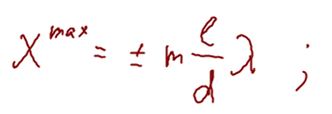 X^max = ± m ℓ/d λ ;